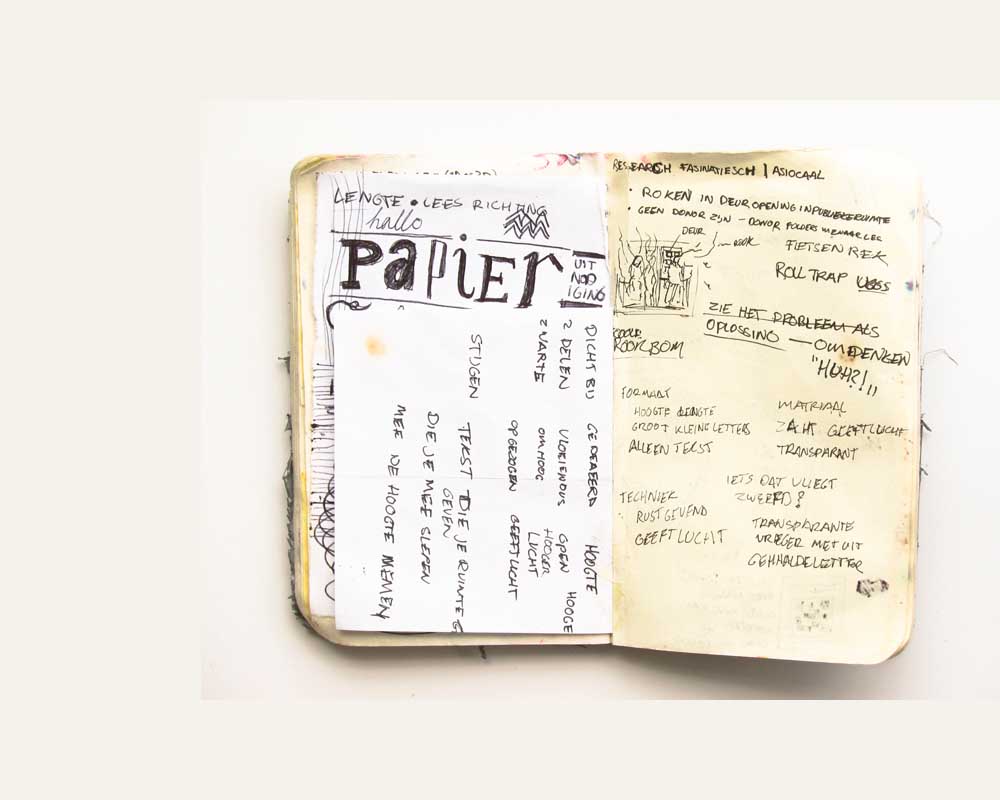 LENGTE • LEES RICHTING
hallo
PapiEr
UIT
NOD
IGING
DICHT BIJ GEDEAEERD HOOGTE
2 DELEN VLOEIENDUS OPEN HOOGE
ZWARTE OMHOOG HOOGER
LUCHT
OPGEZOGEN GEEFT LUCHT
STIJGEN TEKST DIE JE RUINTE
GEVEN
DIE JE MEE SLEPEN
MEE DE HOOGTE
RESEARCH FASINATIESCH | ASIOCAAL
• ROKEN IN DEUROPENING INPUBLIEKERUIMTE
• GEEN DONOR ZIJN - DONOR FOLDERS
DEUR
ROOK
FIETSEN REK
ROLL TRAP
ZIE HET PROBLEEM ALS
OPLOSSING — OMDENKEN
"HUH?!"
ROOKBOM
FORMAAT
HOOGTE LENGTE
GROOT KLEINE LETTERS
ALLEEN TEKST
MATRIAAL
ZAHT GEEFT LUCHT
TRANSPARANT
IETS DAT VLIEGT
ZWEEFD?
TECHNIEK
RUST GIVEND
GEEFT LUCHT
TRANSPARANTE
VRIEGER MET UIT
GEHHALDE LETTER